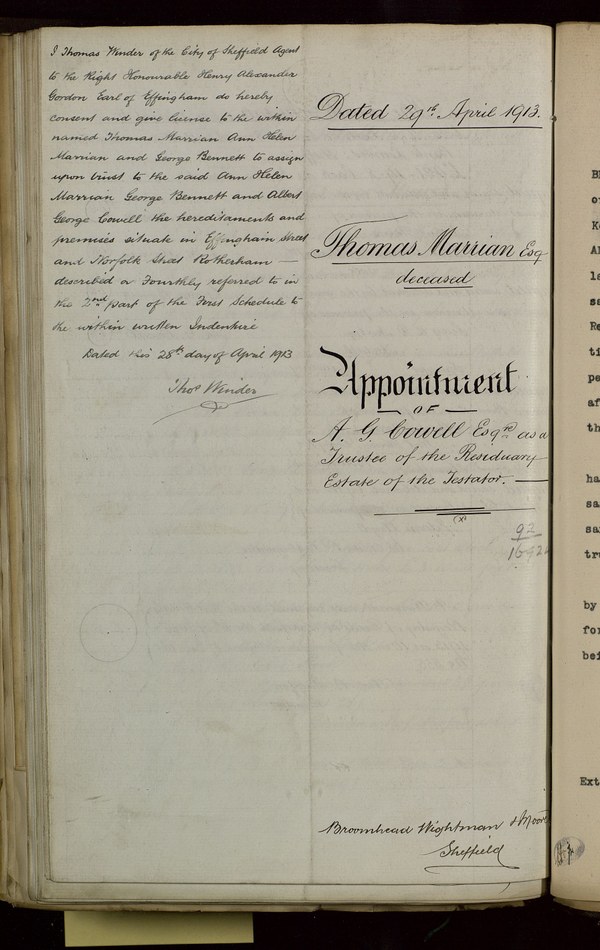 I Thomas Winder of the City of Sheffield Agent
to the Right Honourable Henry Alexander
Gordon Earl of Effingham do hereby
consent and give license to the within
named Thomas Marrian Ann Helen
Marrian and George Bennett to assign
upon trust to the said Ann Helen
Marrian George Bennett and Albert
George Cowell the hereditaments and
premises situate in Effingham Street
and Norfolk Street Rotherham —
described or Fourthly referred to in
the 2nd part of the First Schedule to
the within written Indenture
Dated this 28th day of April 1913
Thos Winder
Dated 29th April 1913.
Thomas Marrian Esq
deceased
Appointment
— OF —
A. G. Cowell Esqre as a
Trustee of the Residuary
Estate of the Testator. —
(x)
92
Broomhead Wightman & Moore
Sheffield
Ext